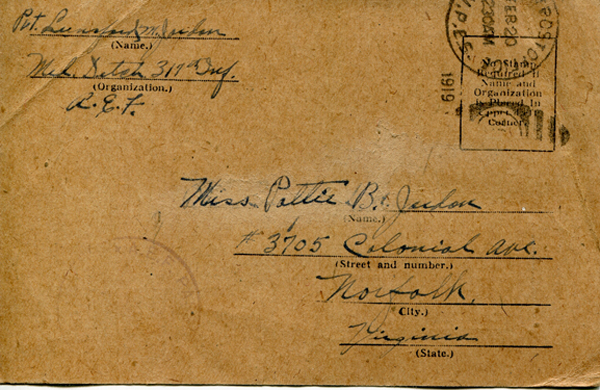 Pvt. Lunsford M. Judon
(Name.)
Med. Detch 317th Inf.
(Organization.)
A.E.F.
M.P.E.S.
FEB 20
1919
No Stamp
Required If
Name and
Organization
Is Placed In
Corner.
Miss Pattie B. Judon
(Name.)
#3705 Colonial Ave.
(Street and number.)
Norfolk.
(City.)
Virginia
(State.)